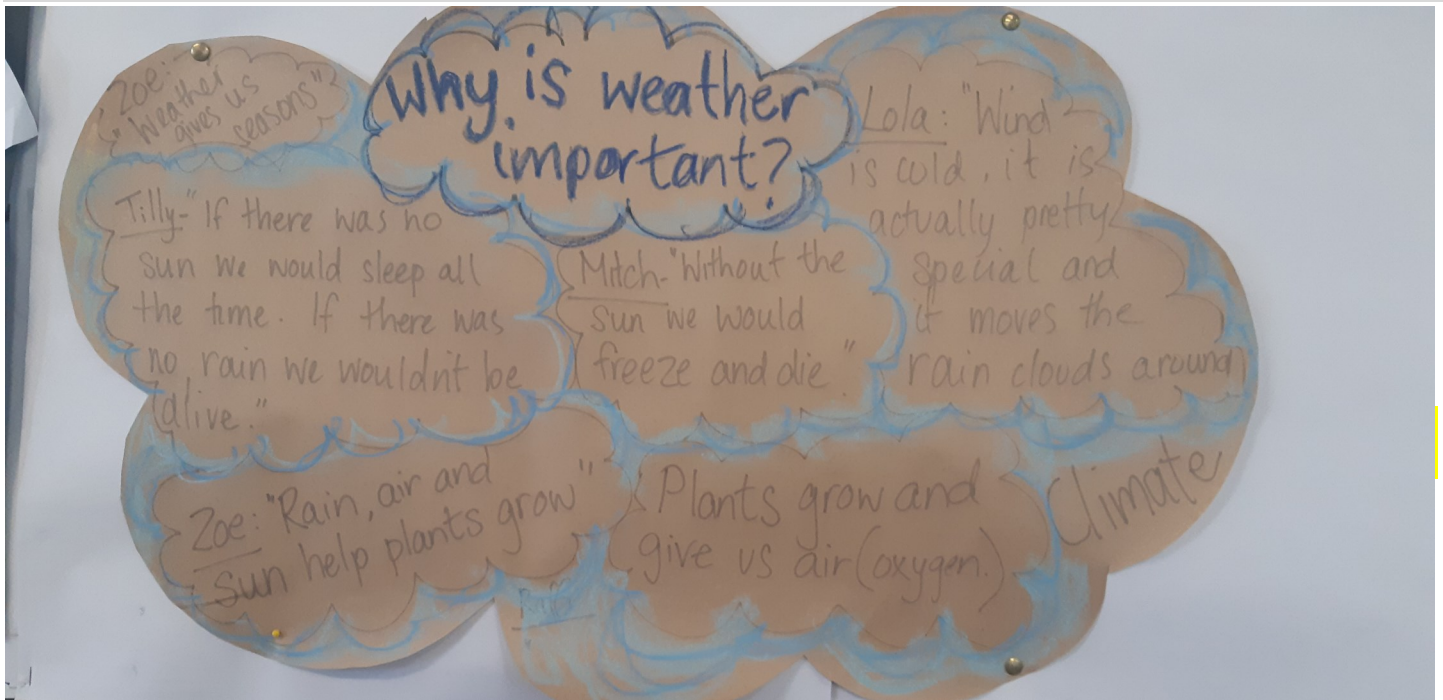 Why is weather
important?
Zoe:
Weather
gives us
seasons"
Tilly-"If there was no
sun we would sleep all
the time. If there was
no rain we wouldn't be
alive."
Mitch-"Without the
sun we would
freeze and die"
Lola: "Wind
is cold, it is
actually pretty
special and
it moves the
rain clouds around
Zoe: "Rain, air and
sun help plants grow"
Plants grow and
give us air (oxygen.)
Climate